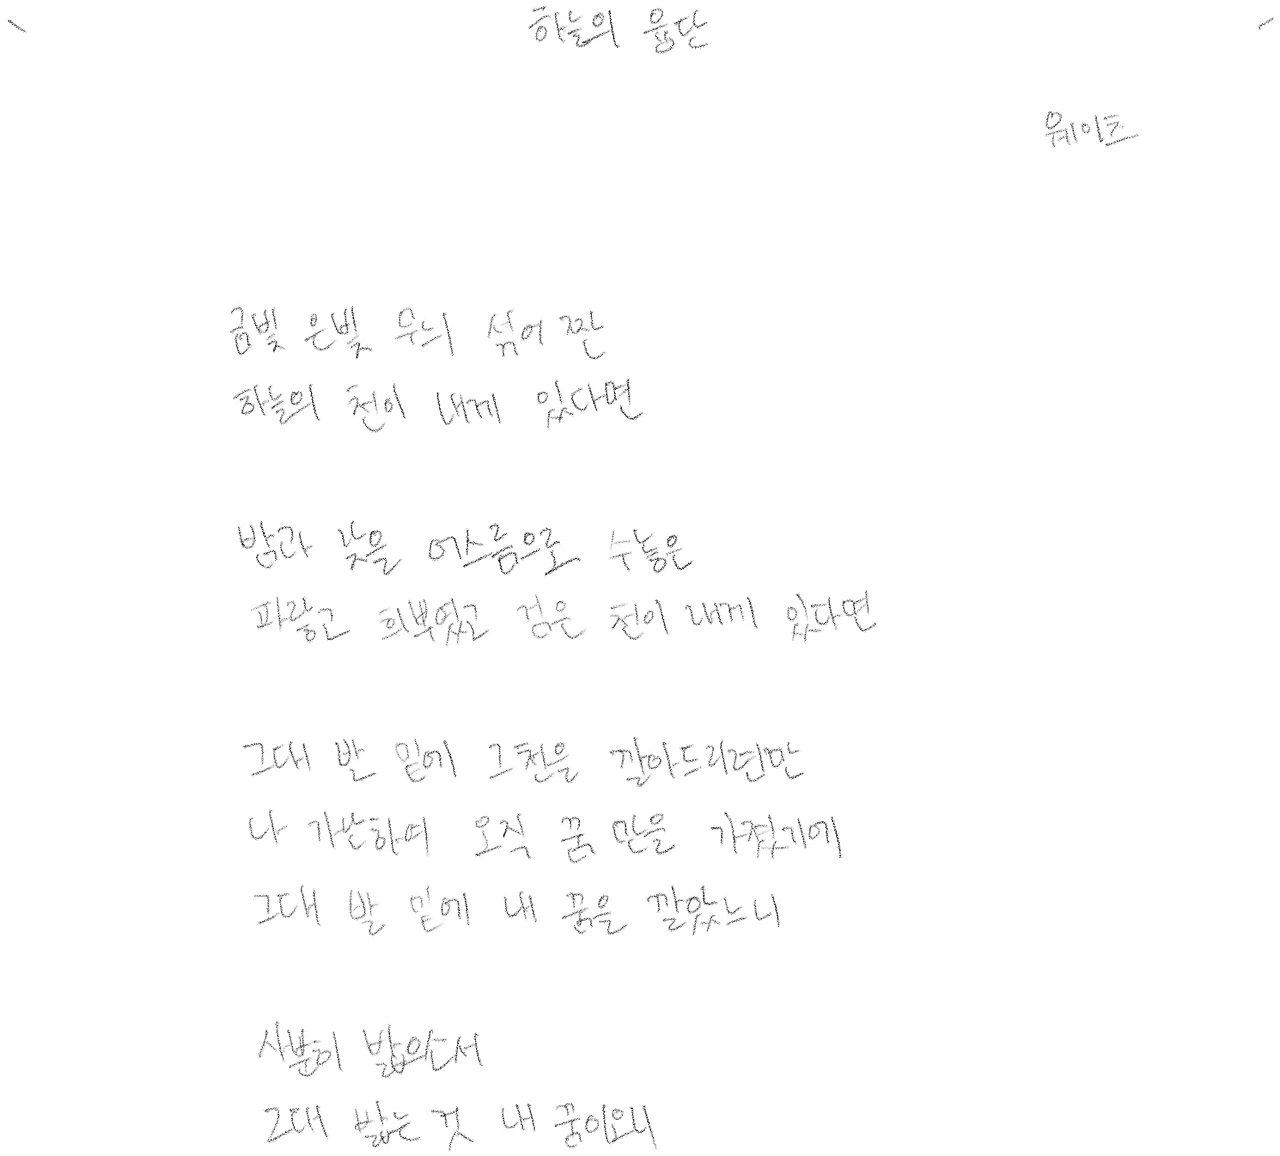 하늘의 융단
웨이츠
금빛 은빛 무늬 섞어 짠
하늘의 천이 내게 있다면
밤과 낮을 어스름으로 수놓은
파랗고 희부옇고 검은 천이 내게 있다면
그대 발 밑에 그 천을 깔아드리련만
나 가난하여 오직 꿈 만을 가졌기에
그대 발 밑에 내 꿈을 깔았느니
사뿐히 밟으소서
그대 밟는 것 내 꿈이오니